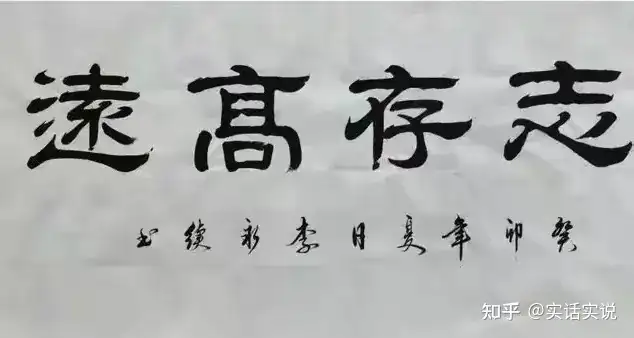 志存高遠
癸卯年夏日李永績书
知乎 @实话实说